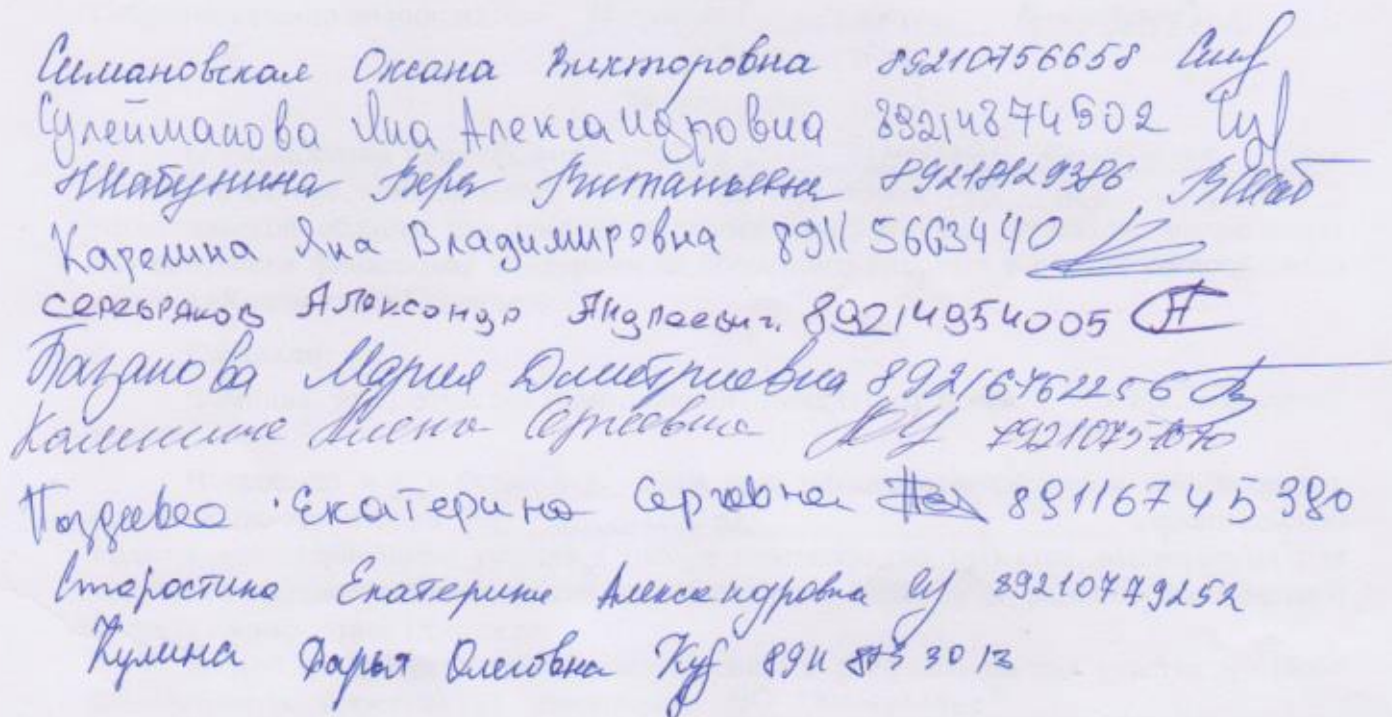 Симановская Оксана Викторовна 89210756658
Сулейманова Яна Александровна 89214874902
Шабунина Вера Витальевна 89218129386
Карелина Яна Владимировна 89115663440
Серебряков Александр Андреевич. 89214954005
Базанова Мария Дмитриевна 89216762256
Калинина Алена Сергеевна
Поздеева Екатерина Сергевна 89116745380
Старостина Екатерина Александровна 89210779252
Кулина Дарья Олеговна 8911 873 30 13